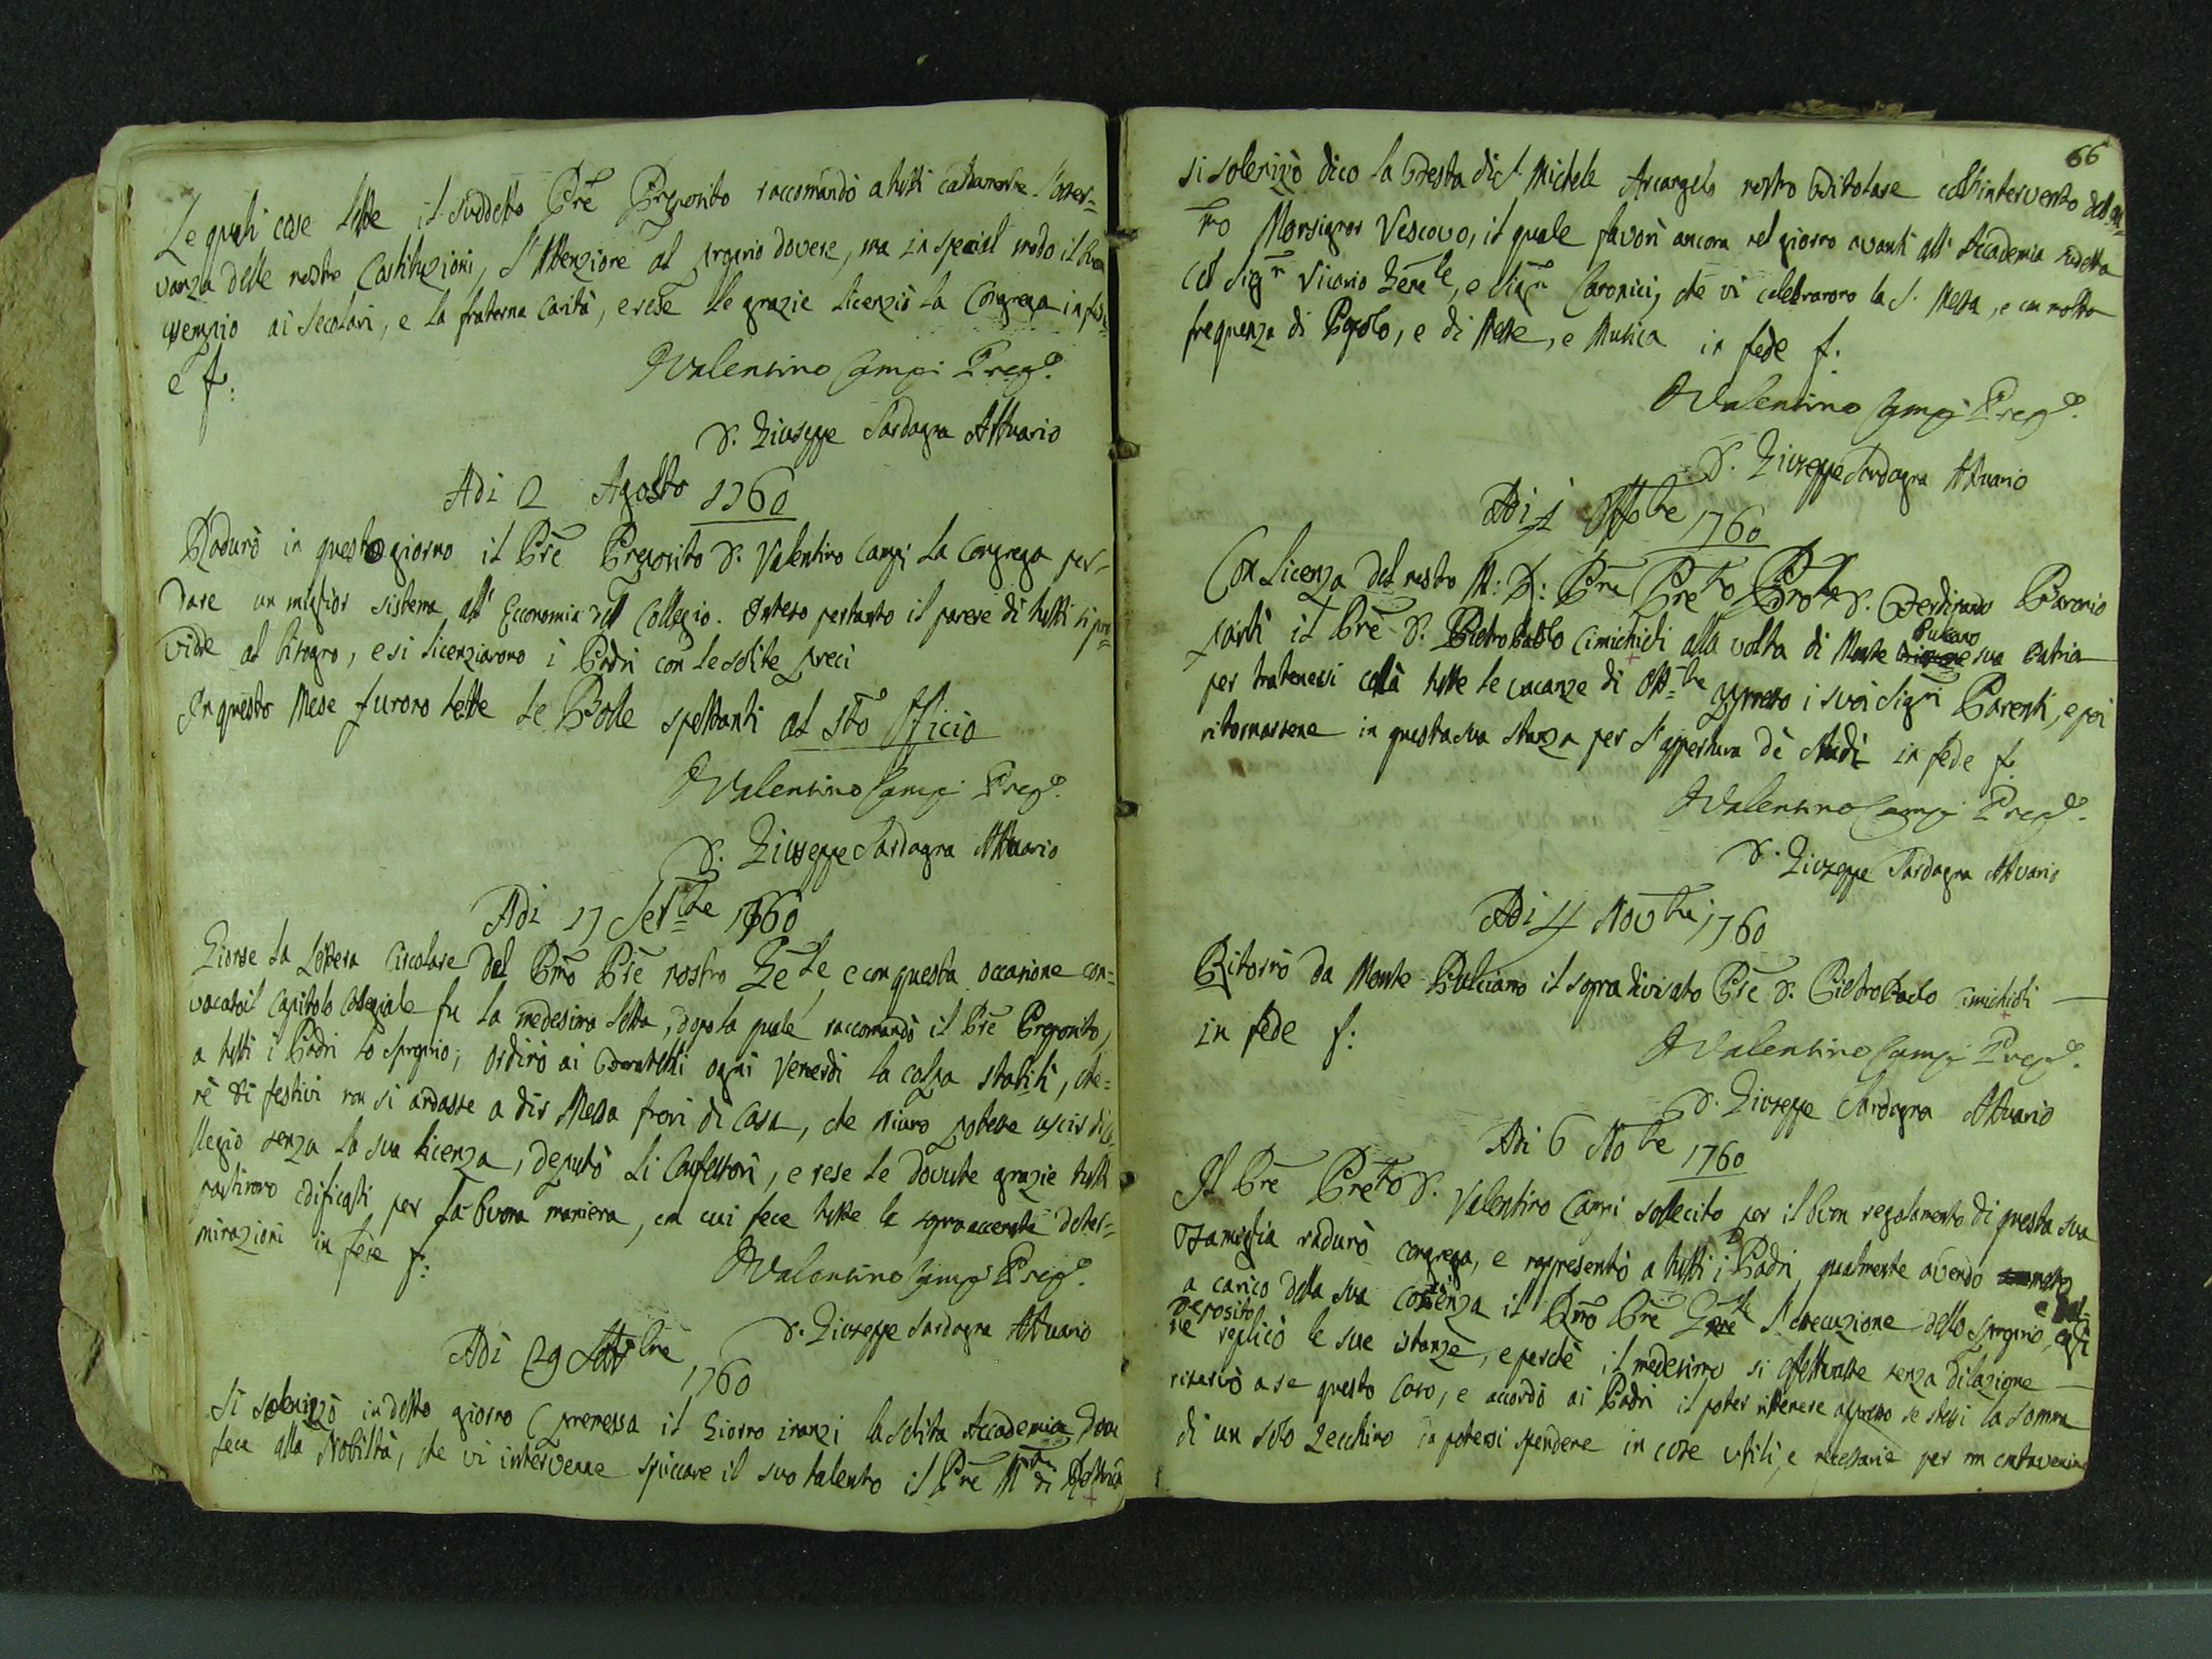 Le quali cose lette il suddetto Prē Preposito raccomandò a tutti caldamente l'osser=
vanza delle nostre Costituzioni, l'Attenzione al proprio dovere, ma in special modo il buon
esempio ai Secolari, e la fraterna Carità, e rese le grazie licenziò la Congrega in fed=
e f:
D Valentino Campi Prep.o
D. Giuseppe Sardagna Attuario
Adi 2 Agosto 1760
Radunò in questo giorno il Prē Preposito D. Valentino Campi la Congrega per=
dare un miglior sistema all' Ecconomia dell Collegio. Inteso pertanto il parere di tutti si pro=
vide al bisogno, e si licenziarono i Padri con le solite preci
In questo Mese furono lette le Bolle spettanti al Sto Officio
D Valentino Campi Prep.o
D. Giuseppe Sardagna Attuario
Adi 17 Setbre 1760
Gionse la Lettera Circolare del Rmo Prē nostro Gēle, e con questa occasione con=
vocatosi Capitolo Collegiale fu la medesima letta, dopo la quale raccomandò il Prē Preposito,
a tutti i Padri lo Sproprio; ordinò ai Fratelli ogni Venerdi la colpa stabilì, che=
nè di festivi non si andasse a dir Messa fuori di Casa, che niuno potesse uscir di Co=
llegio senza la sua licenza, deputò li Confessori, e rese le dovute grazie tutti
partirono edificati per la buona maniera, con cui fece tutte le sopraaccennate deter=
minazioni in fede f:
D Valentino Campi Prep.o
D. Giuseppe Sardagna Attuario
Adi 29 Settbre 1760
Si solenizzò in detto giorno (premessa il Giorno inanzi la solita Accademia dove
fece alla Nobiltà, che vi intervenne spiccare il suo talento il Prē Mro di Rettorica
66
si solenizò dico la Festa di S. Michele Arcangelo nostro Titolare coll'intervento dell'
mo Monsignor Vescovo, il quale favorì ancora nel giorno avanti all' Accademia sudetta
col Sigr Vicario Genele, e Sigri Canonici, che vi celebrarono la S. Messa, e con molta
frequenza di Popolo, e di Messe, e Musica in fede f.
D Valentino Campi Prep.o
D. Giuseppe Sardagna Attuario
Adi 4 Ottobre 1760
Con Licenza del nostro M: R: Prē Preto Prole D. Ferdinando Baronio
partì il Prē D. Pietro Paolo Cimichidi alla volta di Monte Pulciano sua Patria
per tratenersi collà tutte le vacanze di Ottbre appresso i suoi Sigri Parenti, e poi
ritornassene in questa sua stanza per l'appertura dè Studi in fede f.
D Valentino Campi Prep.o
D. Giuseppe Sardagna Attuario
Adi 4 Novbre 1760
Ritornò da Monte Pulciano il sopradivisato Prē D. Pietro Paolo Cimichidi —
in fede f:
D Valentino Campi Prep.o
D. Giuseppe Sardagna Attuario
Adi 6 Nobre 1760
Il Prē Preto D. Valentino Campi sollecito per il buon regolamento di questa sua
Famiglia radunò congrega, e rappresentò a tutti i Padri qualmente avendo
a carico della sua Coscienza il Rmo Prē Genle l'esecuzione dello Sproprio, e
Deposito egli
ne replicò le sue istanze, e perchè il medesimo si effettuasse senza dilazione —
riservò a se questo Caso, e accordò ai Padri il poter rittenere appresso se stessi la somma
di un solo Zecchino da potersi spendere in cose utili, e necessarie per non contravenire